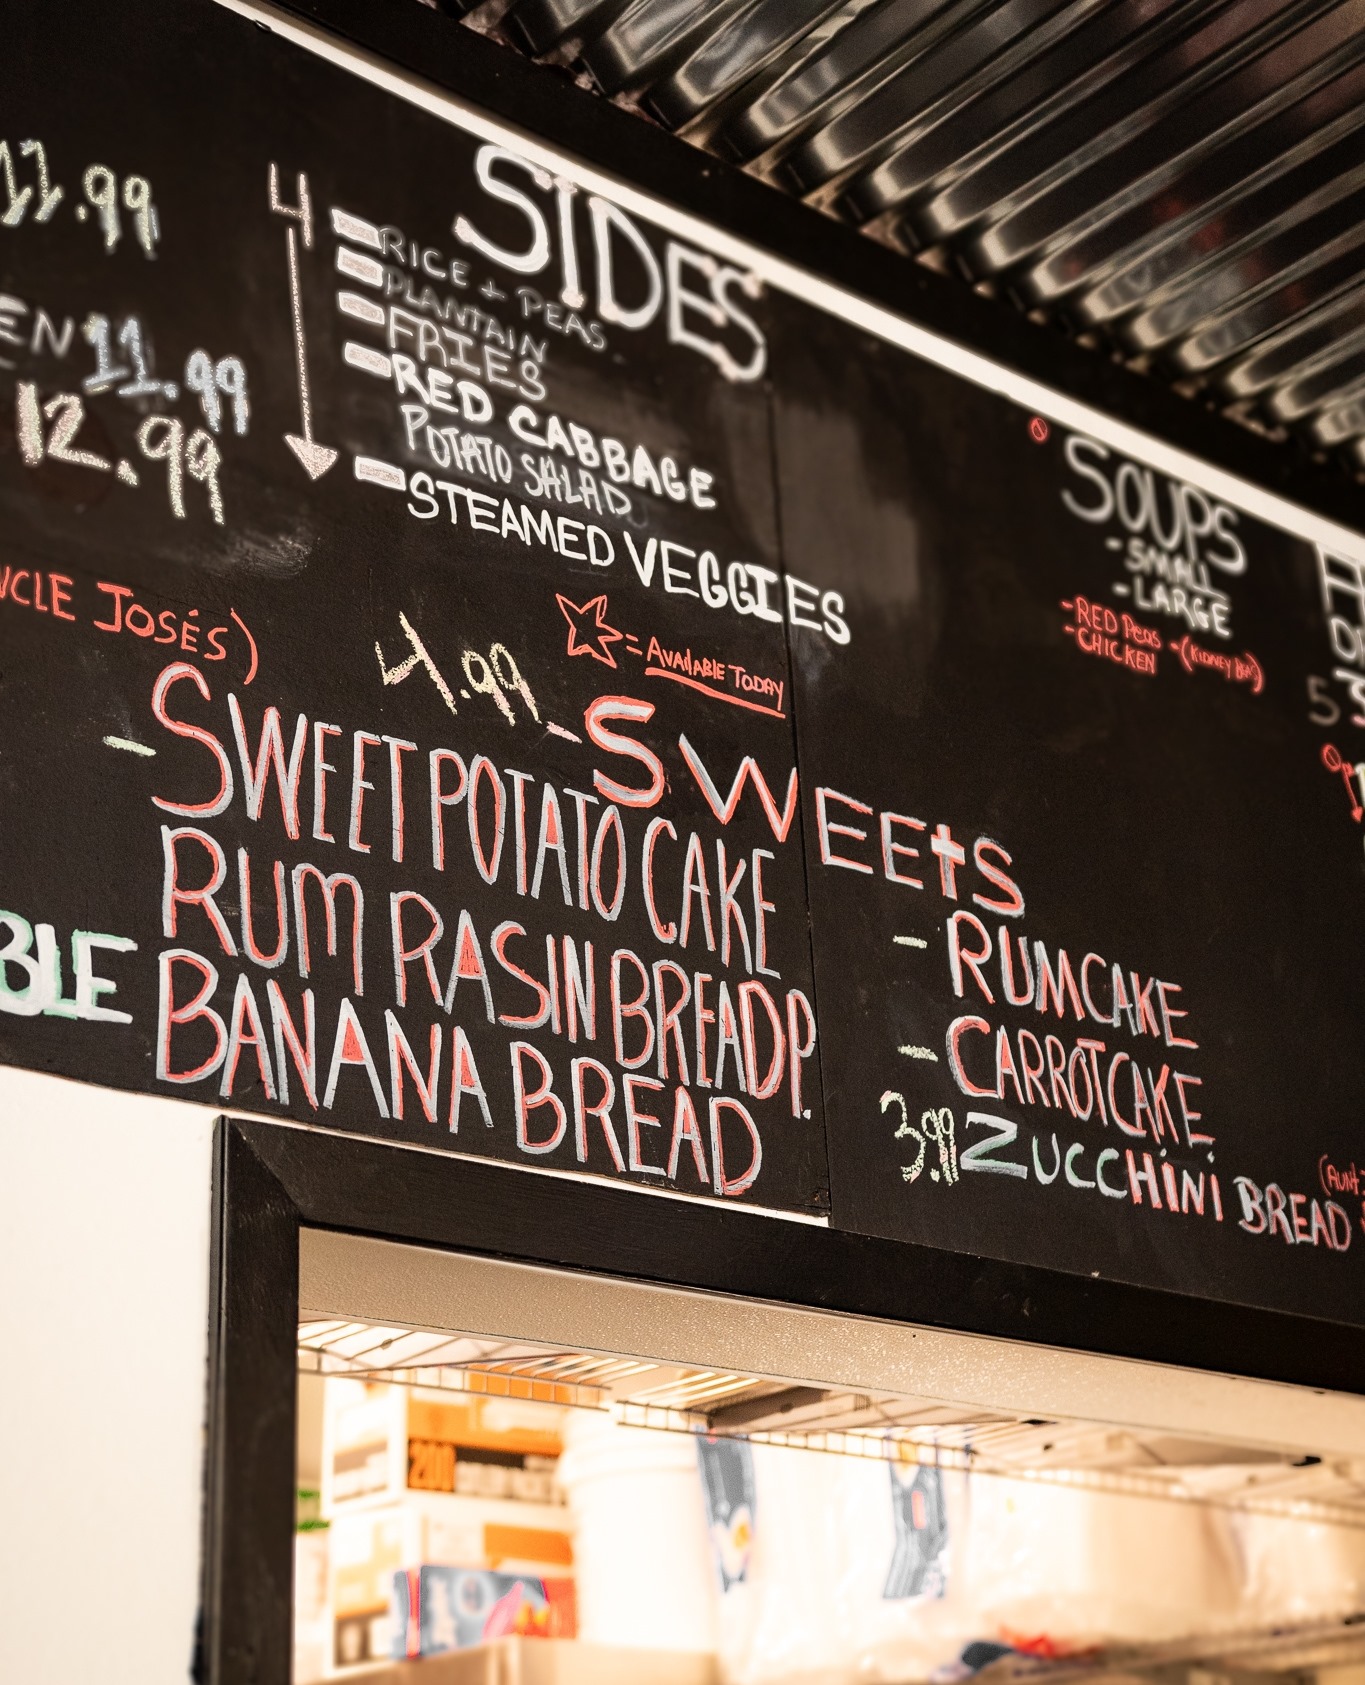 11.99
4
SIDES
RICE + PEAS
PLANTAIN
FRIES
RED CABBAGE
POTATO SALAD
STEAMED VEGGIES
EN 11.99
12.99
NCLE JOSÉS)
4.99
= AVAILABLE TODAY
SWEEtS
- SWEET POTATO CAKE
RUM RASIN BREAD P.
BANANA BREAD
BLE
SOUPS
- SMALL
- LARGE
- RED PEAS - (KIDNEY BEAN)
- CHICKEN
5
- RUMCAKE
- CARROTCAKE
3.99 ZUCCHINI BREAD
(AUNT
200